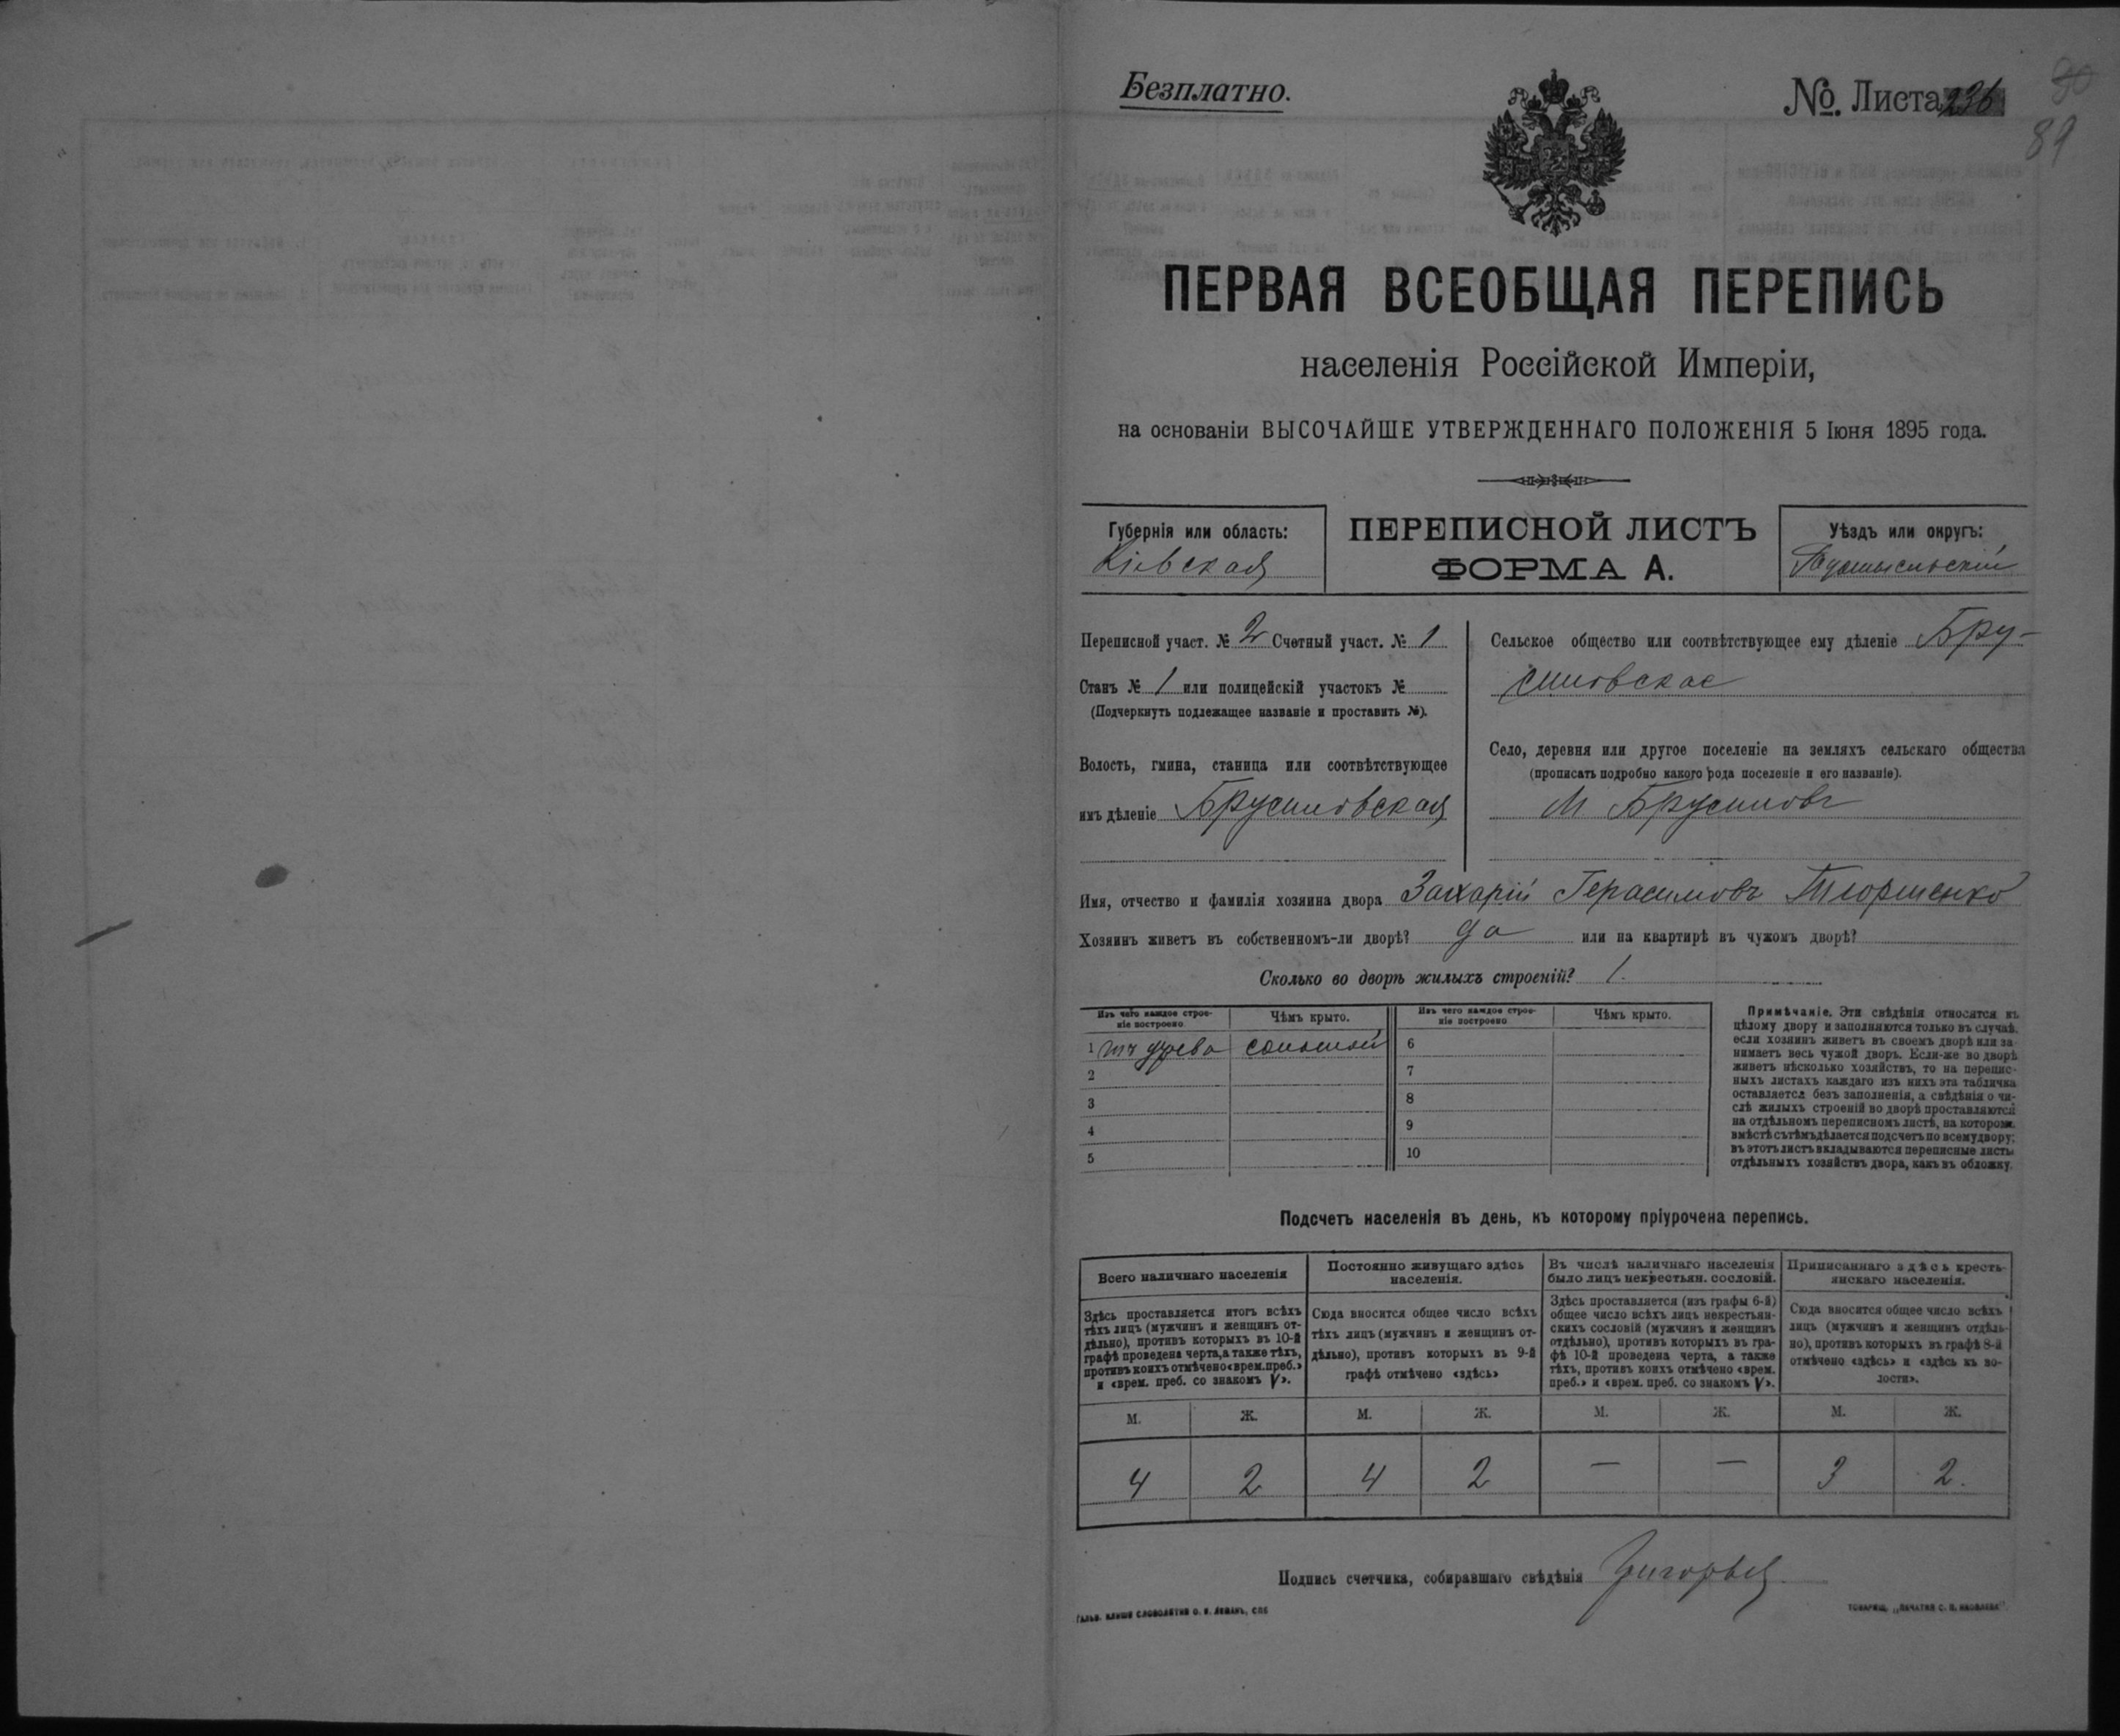 Безплатно.
№ Листа 236
90
89
ПЕРВАЯ ВСЕОБЩАЯ ПЕРЕПИСЬ
населенія Россійской Имперіи,
на основаніи ВЫСОЧАЙШЕ УТВЕРЖДЕННАГО ПОЛОЖЕНІЯ 5 Іюня 1895 года.
Губернія или область:
Кіевская
ПЕРЕПИСНОЙ ЛИСТЪ
ФОРМА А.
Уѣздъ или округъ:
Радомысльскій
Переписной участ. № 2 Счетный участ. № 1
Станъ № 1 или полицейскій участокъ №
(Подчеркнуть подлежащее названіе и проставить №).
Волость, гмина, станица или соотвѣтствующее
имъ дѣленіе Брусиловская
Сельское общество или соотвѣтствующее ему дѣленіе Бру-
силовское
Село, деревня или другое поселеніе на земляхъ сельскаго общества
(прописать подробно какого рода поселеніе и его названіе).
М Брусиловъ
Имя, отчество и фамилія хозяина двора Захарій Герасимовъ
Хозяинъ живетъ въ собственномъ-ли дворѣ? да или на квартирѣ въ чужомъ дворѣ?
Сколько во дворѣ жилыхъ строеній? 1.
Изъ чего каждое строе-
ніе построено
Чѣмъ крыто.
Изъ чего каждое строе-
ніе построено
Чѣмъ крыто.
1 изъ древа соломой 6
2 7
3 8
4 9
5 10
Примѣчаніе. Эти свѣдѣнія относятся къ
цѣлому двору и заполняются только въ случаѣ,
если хозяинъ живетъ въ своемъ дворѣ или за-
нимаетъ весь чужой дворъ. Если-же во дворѣ
живетъ нѣсколько хозяйствъ, то на перепис-
ныхъ листахъ каждаго изъ нихъ эта табличка
оставляется безъ заполненія, а свѣдѣнія о чи-
слѣ жилыхъ строеній во дворѣ проставляются
на отдѣльномъ переписномъ листѣ, на котором
вмѣстѣ съ тѣмъ дѣлается подсчетъ по всему двору;
въ этотъ листъ вкладываются переписные листы
отдѣльныхъ хозяйствъ двора, какъ въ обложку.
Подсчетъ населенія въ день, къ которому пріурочена перепись.
Всего наличнаго населенія
Здѣсь проставляется итогъ всѣхъ
тѣхъ лицъ (мужчинъ и женщинъ от-
дѣльно), противъ которыхъ въ 10-й
графѣ проведена черта, а также тѣхъ,
противъ коихъ отмѣчено «врем. преб.»
и «врем. преб. со знакомъ V».
Постоянно живущаго здѣсь
населенія.
Сюда вносится общее число всѣхъ
тѣхъ лицъ (мужчинъ и женщинъ от-
дѣльно), противъ которыхъ въ 9-й
графѣ отмѣчено «здѣсь»
Въ числѣ наличнаго населенія
было лицъ некрестьян. сословій.
Здѣсь проставляется (изъ графы 6-й)
общее число всѣхъ лицъ некрестьян-
скихъ сословій (мужчинъ и женщинъ
отдѣльно), противъ которыхъ въ гра-
фѣ 10-й проведена черта, а также
тѣхъ, противъ коихъ отмѣчено «врем.
преб.» и «врем. преб. со знакомъ V».
Приписаннаго здѣсь кресть-
янскаго населенія.
Сюда вносится общее число всѣхъ
лицъ (мужчинъ и женщинъ отдѣль-
но), противъ которыхъ въ графѣ 8-й
отмѣчено «здѣсь» и «здѣсь къ во-
лости».
М. Ж. М. Ж. М. Ж. М. Ж.
4 2 4 2 — — 3 2.
Подпись счетчика, собиравшаго свѣдѣнія
ГАЛЬВ. КЛИШЕ СЛОВОЛИТНИ О. И. ЛЕМАНЪ, СПБ
ТОВАРИЩ. „ПЕЧАТНЯ С. П. ЯКОВЛЕВА".